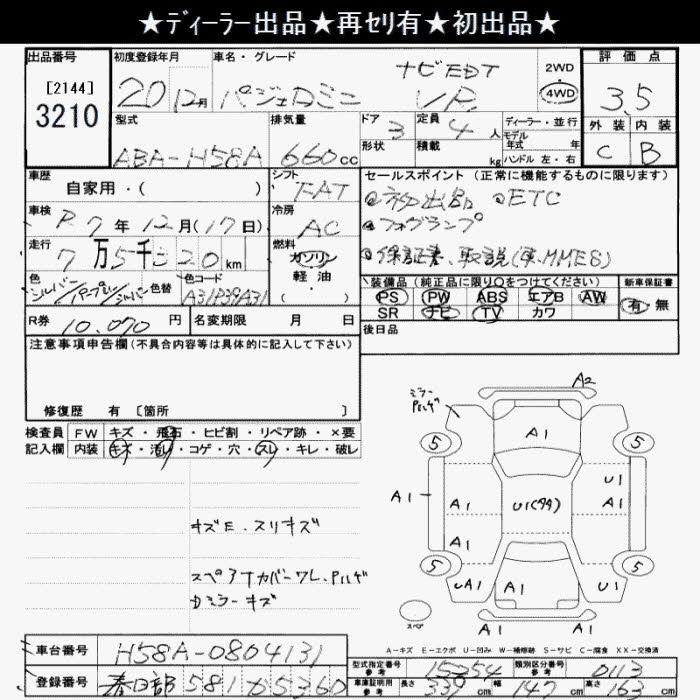 ★ディーラー出品★再セリ有★初出品★
出品番号
[2144]
3210
初度登録年月
20 12月
車名・グレード
ナビEDT
パジェロミニ VR
2WD
4WD
評価点
3.5
型式
ABA-H58A
排気量
660cc
ドア 3
形状
定員 4人
積載 kg
ディーラー・並行
モデル
年式 年
ハンドル 左・右
外装 内装
C B
車歴
自家用・( )
シフト
FAT
セールスポイント(正常に機能するものに限ります)
初出品 ETC
フォグランプ
保証書、取説(車、MMES)
車検
R7年12月(17日)
冷房
AC
走行
7万5千 20km
燃料
ガソリン
軽・油
( )
色
シルバー/パープル/シルバー
色替
色コード
A31P39A31
装備品(純正品に限り○をつけてください)
PS PW ABS エアB AW
SR ナビ TV カワ
新車保証書
有 無
R券 10,070円
名変期限 月 日
後日品
注意事項申告欄(不具合内容等は具体的に記入して下さい)
修復歴 有 〔箇所 〕
検査員
記入欄
FW キズ・飛石・ヒビ割・リペア跡・×要
内装 キズ・汚レ・コゲ・穴・スレ・キレ・破レ
キズE・スリキズ
スペアTカバーワレ、Pハゲ
ミラーキズ
ミラー
Pハゲ
A2
A1
5
5
U1
A1
A1
A1
A1
U1(44)
5
5
UA1
A1
U1
スペア
A1
A1
A-キズ E-エクボ U-凹み W-補修跡 S-サビ C-腐食 XX-交換済
車台番号 H58A-0804131
登録番号 春日部581 65360
型式指定番号
参考
15254
類別区分番号
参考
0113
車庫証明用
参考
長さ 339cm 幅 147cm 高さ 163cm